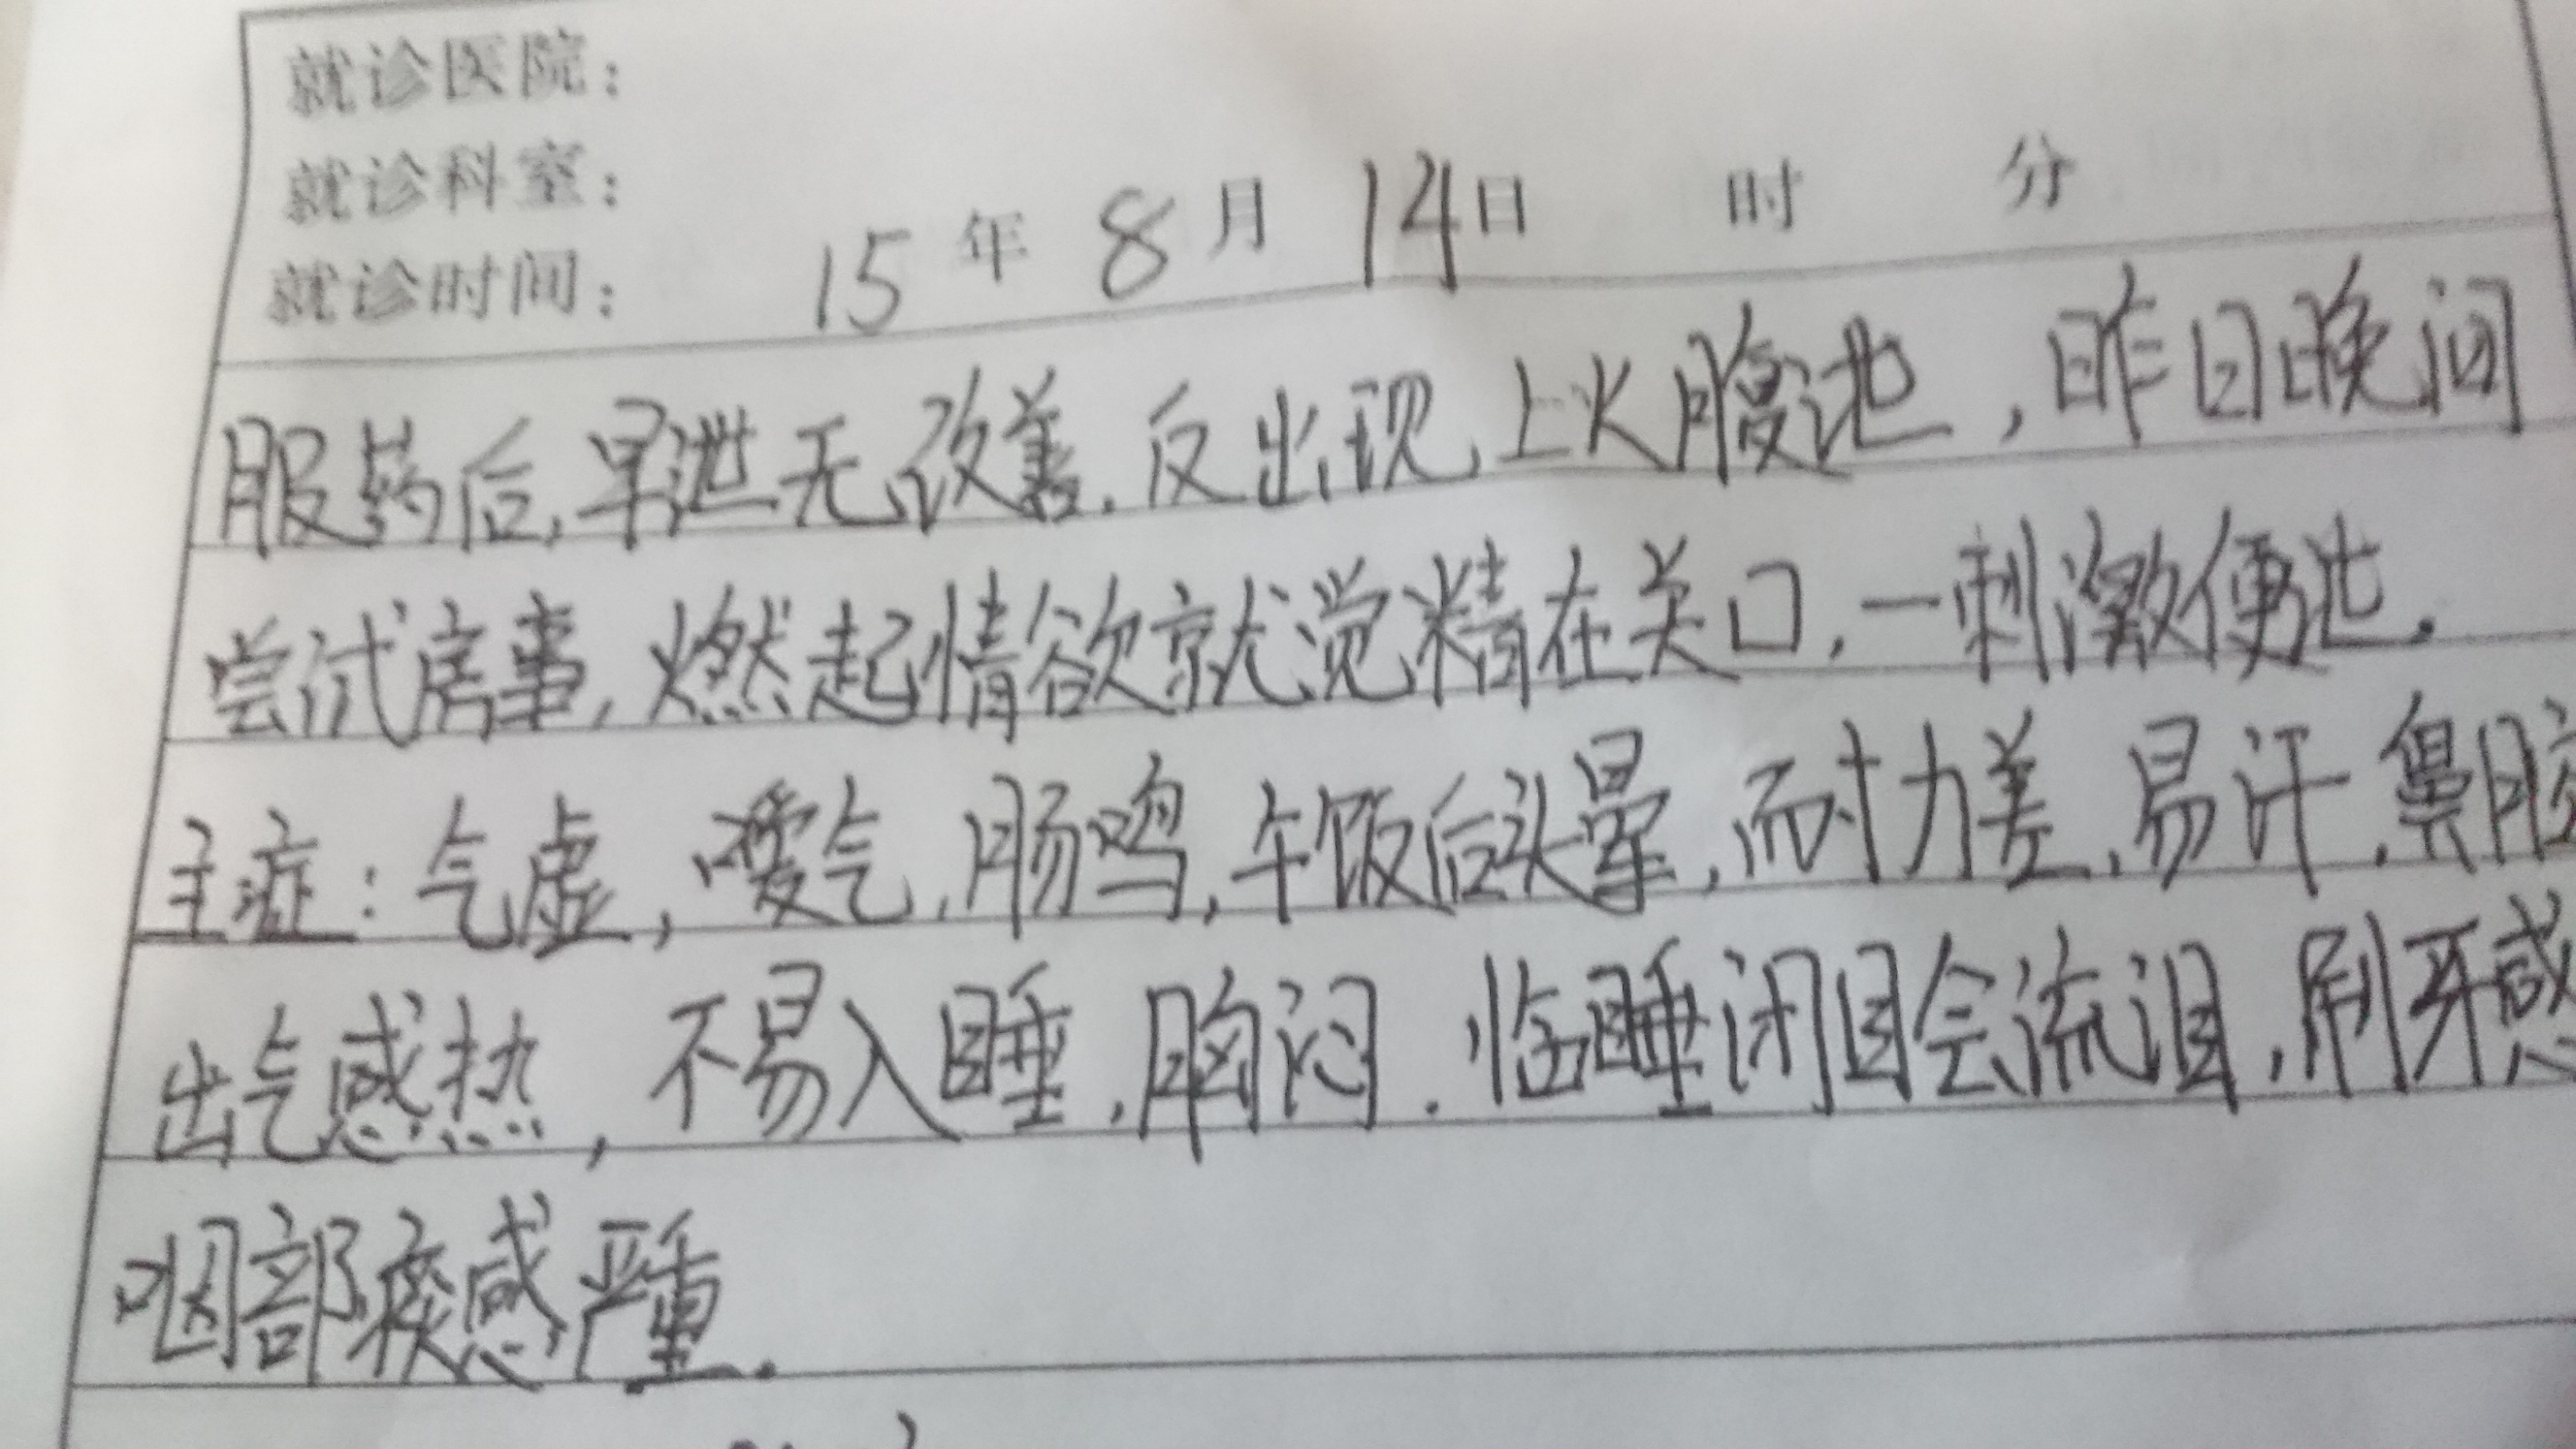 就诊医院：
就诊科室：
就诊时间： 15 年 8 月 14日 时 分
服药后，早泄无改善，反出现上火腹泄，昨日晚间
尝试房事，燃起情欲就觉精在关口，一刺激便泄。
主症：气虚，嗳气，肠鸣，午饭后头晕，耐力差，易汗，鼻腔
出气感热，不易入睡，胸闷，临睡闭目会流泪，刷牙感
咽部痰感严重．